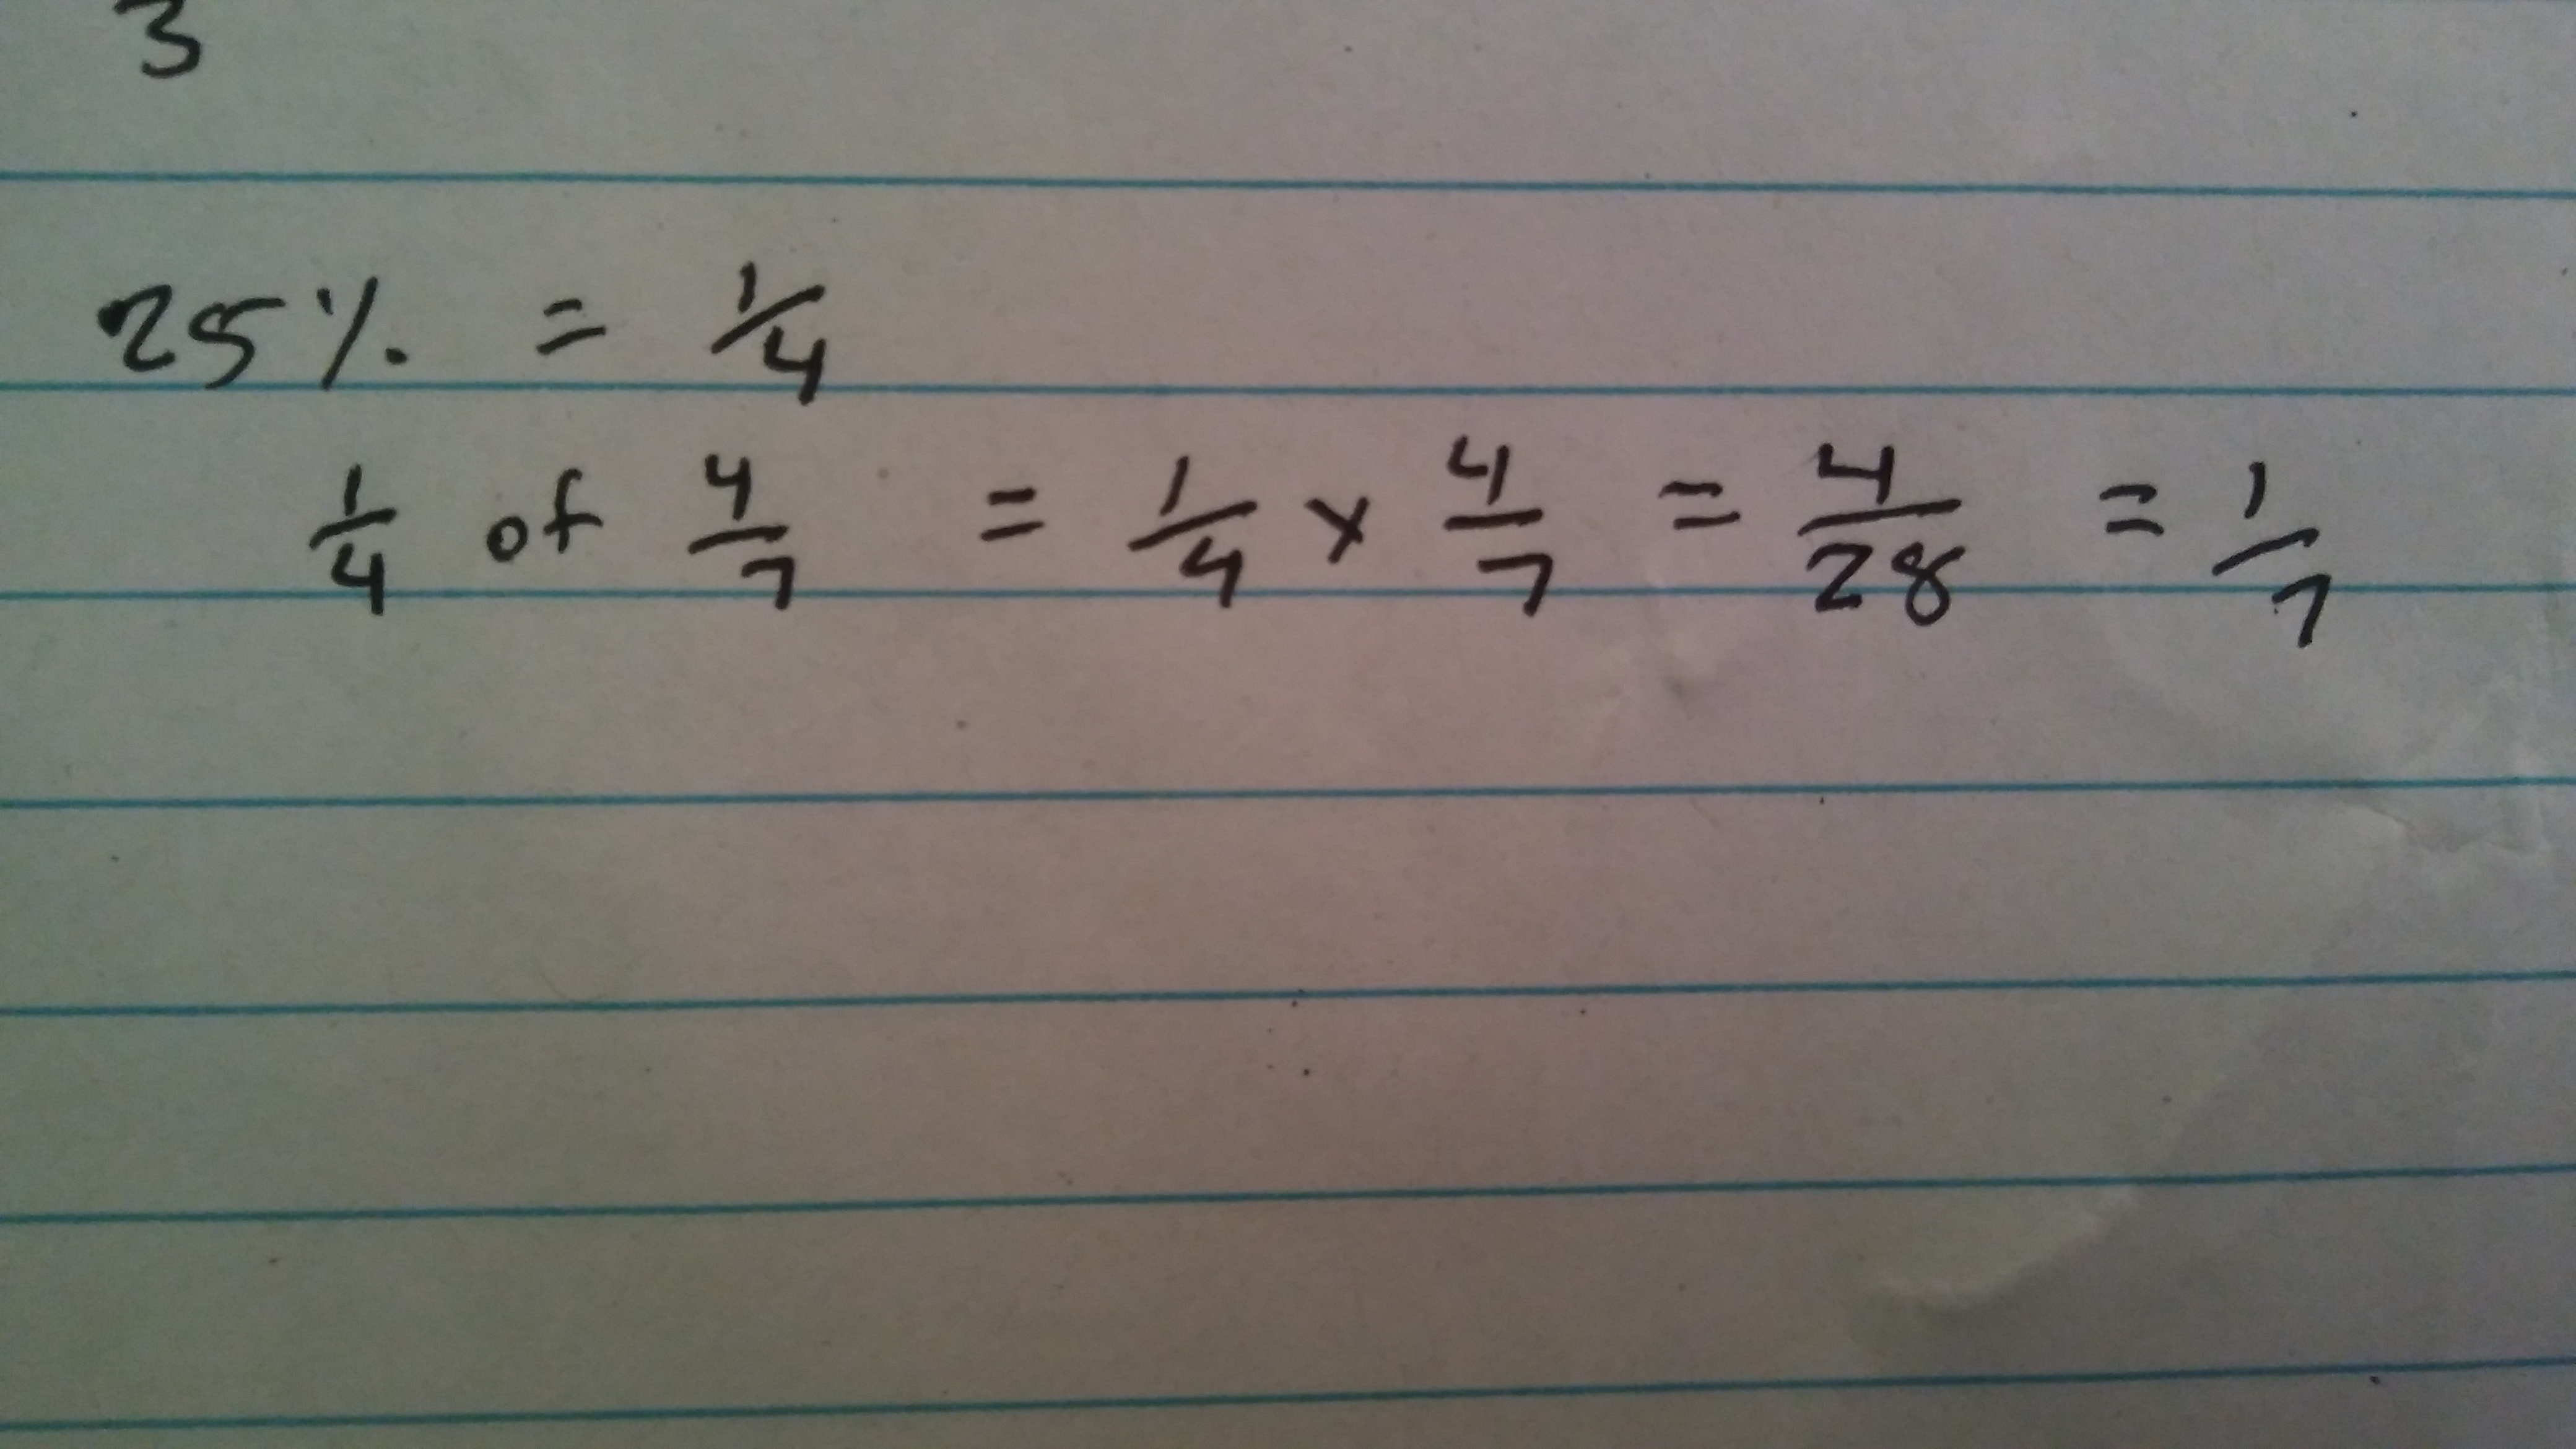 3
25% = 1/4
1/4 of 4/7 = 1/4 x 4/7 = 4/28 = 1/7